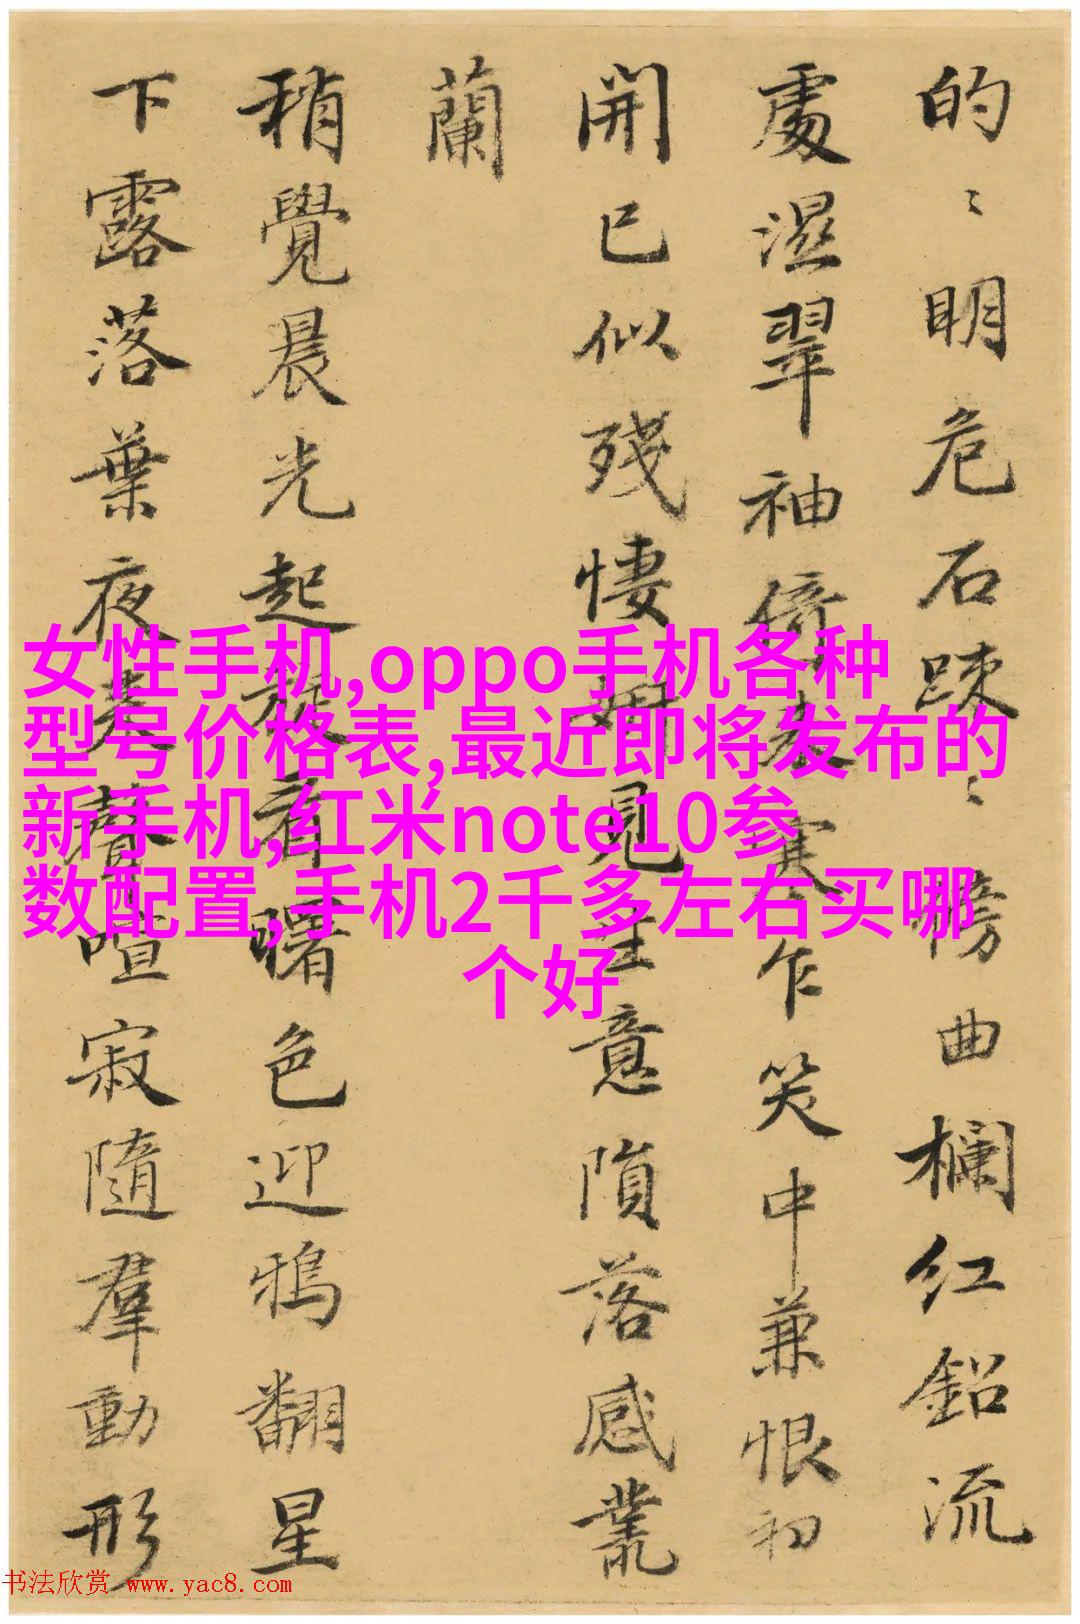 的〻明危石踈〻傍曲欄紅鉛流
處濕翠袖倚来寒乍笑中兼恨初
開已似殘悽妍見生意隕落感叢
蘭
稍覺晨光起旋看曙色迎鴉翻星
下露落葉夜来聲喧寂隨羣動形
女性手机,oppo手机各种
型号价格表,最近即将发布的
新手机,红米note10参
数配置,手机2千多左右买哪
个好
书法欣赏 www.yac8.com